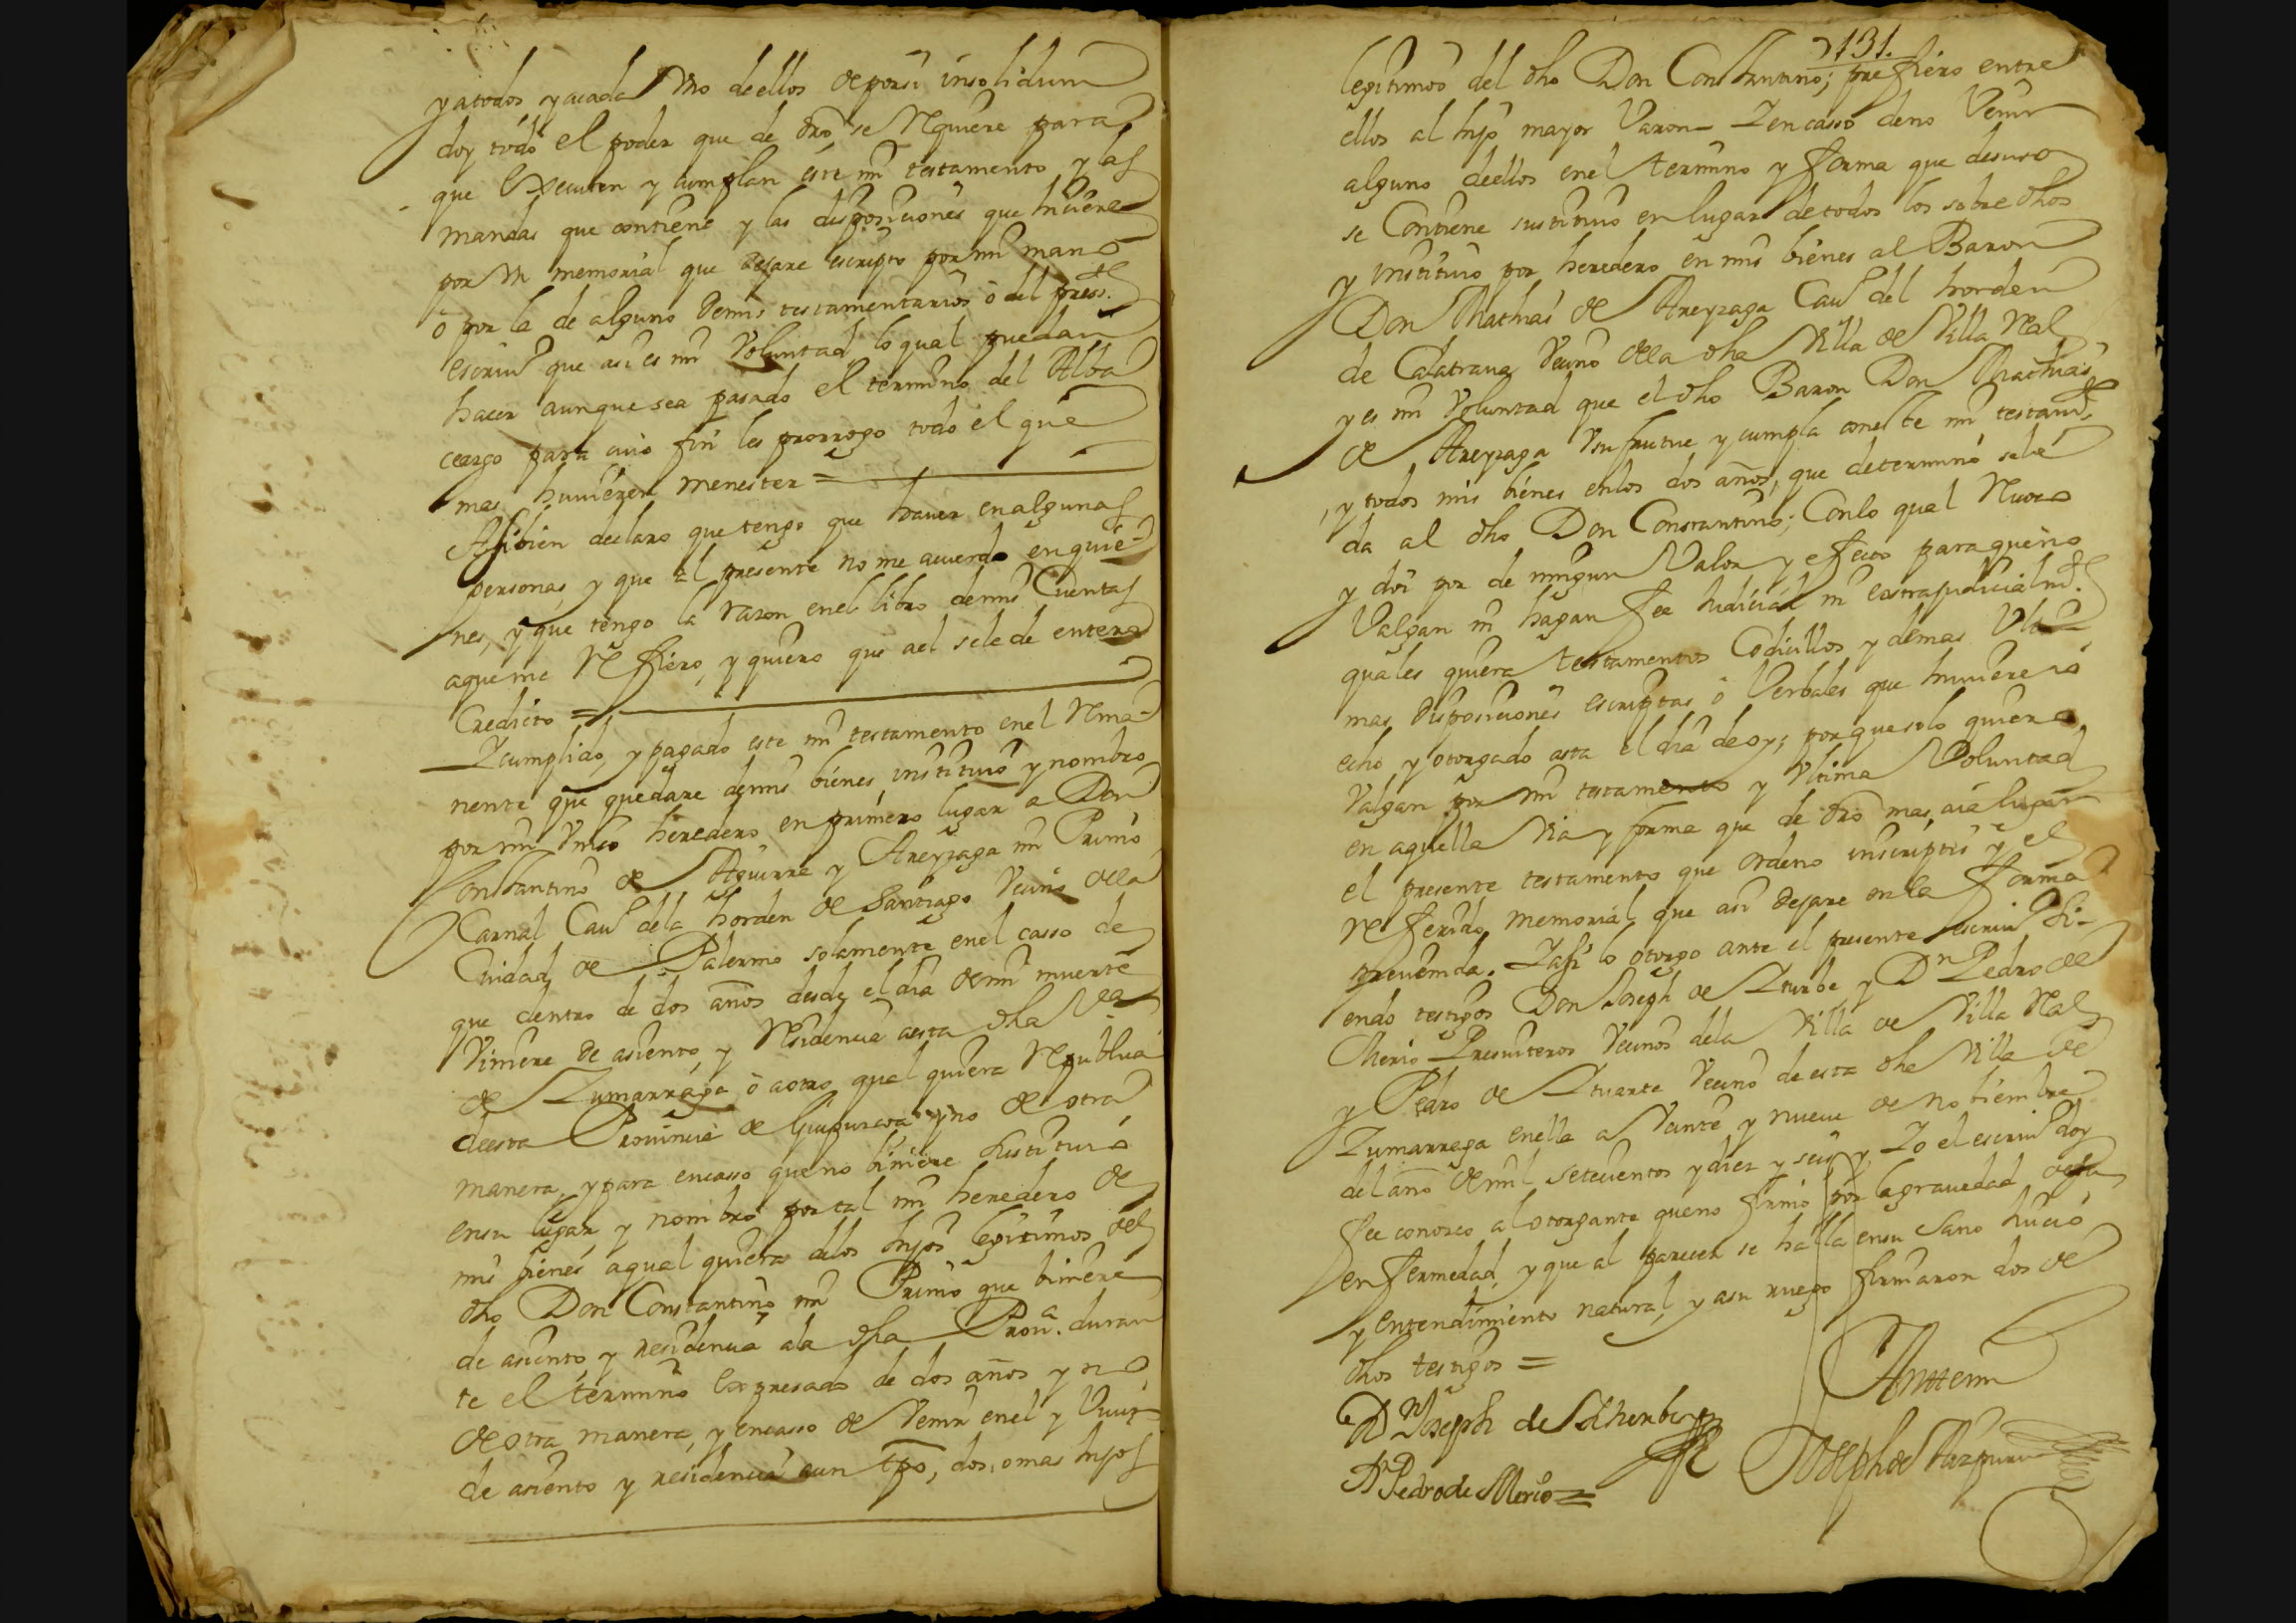 y a todos y a cada Vno de ellos de por si insolidum
doy todo el poder que de dro se Requiere para
que Executen y cumplan este mi testamento y las
mandas que contiene y las disposiciones que hiciere
por Vn memorial que dejare escripto por mi mano
ò por la de alguno demis testamentarios ò del press.te
escriuº que asi es mi Voluntad, lo qual puedan
hacer aunque sea pasado el termino del Alba
ceazgo para cuio fin les prorrogo todo el que
mas huuieren menester =
Assibien declaro que tengo que hauer en algunas
personas, y que al presente no me acuerdo en quie-
nes, y que tengo la razon enel libro demis Cuentas
aque me Refiero, y quiero que a el se le de entero
Credicto =
Y cumplido, y pagado este mi testamento enel Rema-
nente que quedare demis bienes, instituio y nombro
por mi Vnico heredero en primero lugar a Don
Constantino de Aguirre y Areyzaga mi Primo
Carnal Cauº dela horden de Santiago Vecino dela
Ciudad de Palermo solamente enel casso de
que dentro de dos años desde el dia de mi muerte
Viniere de asiento, y Residencia aesta dha Vª
de Zumarraga, ò a otro qual quiera Republica
deesta Prouincia de Guipuzcoa y no de otra
manera, y para encasso que no biniere sustituio
ensu lugar y nombro por tal mi heredero de
mis bienes aqual quiera delos hijos legitimos del
dho Don Constantino mi Primo que biniere
de asiento, y residencia ala dha Prouª. duran
te el termino Expresado de dos años y no
de otra manera, y encasso de Venir enel y Viuir
de asiento y residencia aun tpo, dos, o mas hijos
131.
legitimos del dho Don Constantino; prefiero entre
ellos al hijo mayor Varon Y encasso deno Venir
alguno deellos enel termino y forma que desuso
se Contiene sustituio en lugar de todos los sobre dhos
y instituio por heredero en mis bienes al Baron
Don Mathias de Areyzaga Cauº del horden
de Calatraua Vecino dela dha Villa de Villa Real
y es mi Voluntad que el dho Baron Don Mathias
de Areyzaga Vsufrutue y cumpla con este mi testamto,
y todos mis bienes enlos dos años, que determino sele
da al dho Don Constantino; Conlo qual Reuoco
y doi por de ningun Valor y efecto paraqueno
Valgan ni hagan fee Judicial ni extrajudicialmte.
quales quiera testamentos Codicillos y demas Vlti-
mas disposiciones escriptas ò Verbales que huuiere
echo y otorgado asta el dia de oy; porque solo quiero
Valgan por mi testamento y Vltima Voluntad
en aquella Via y forma que de dro mas aia lugar
el presente testamento que ordeno inscriptis y el
referido memorial que asi dejare en la forma
preuenida. Y assi lo otorgo ante el presente escriuº si-
endo testigos Don Joseph de Yturbe, y Dn Pedro de
Merio Presuiteros Vecinos dela Villa de Villa Real
y Pedro de Ytuarte Vecino de esta dha Villa de
Zumarraga enella a Veinte y nueue de nobiembre
del año de mil setecientos y diez y seis, y Yo el escriuº doy
fee conozco al otorgante que no firmo por la grauedad desu
enfermedad, y que al parecer se halla ensu sano Juicio
y entendimiento natural, y asu ruego firmaron dos de
dhos testigos =
Dn Joseph de
Dn Pedro de Merio =
Antemi
Joseph de